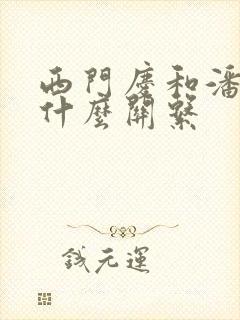 西門慶和潘
什麼關繫
錢元運